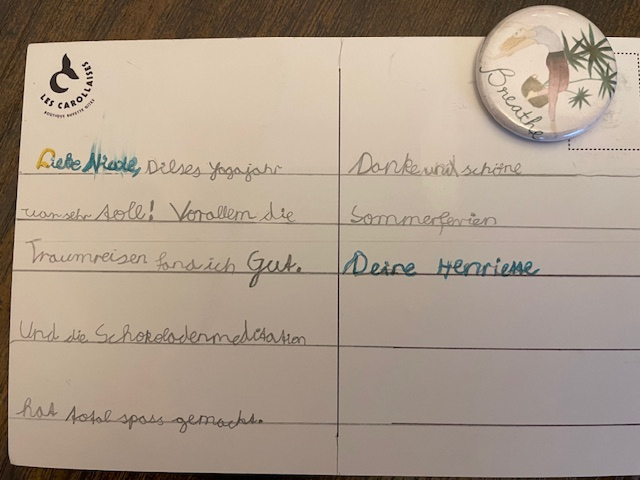 LES CAROLLAISES
Breathe
Liebe Nicole, Dieses Yogajahr
war sehr toll! Vorallem die
Traumreisen fand ich Gut.
Und die Schokoladenmeditation
hat total spass gemacht.
Danke und schöne
Sommerferien
Deine Henriette